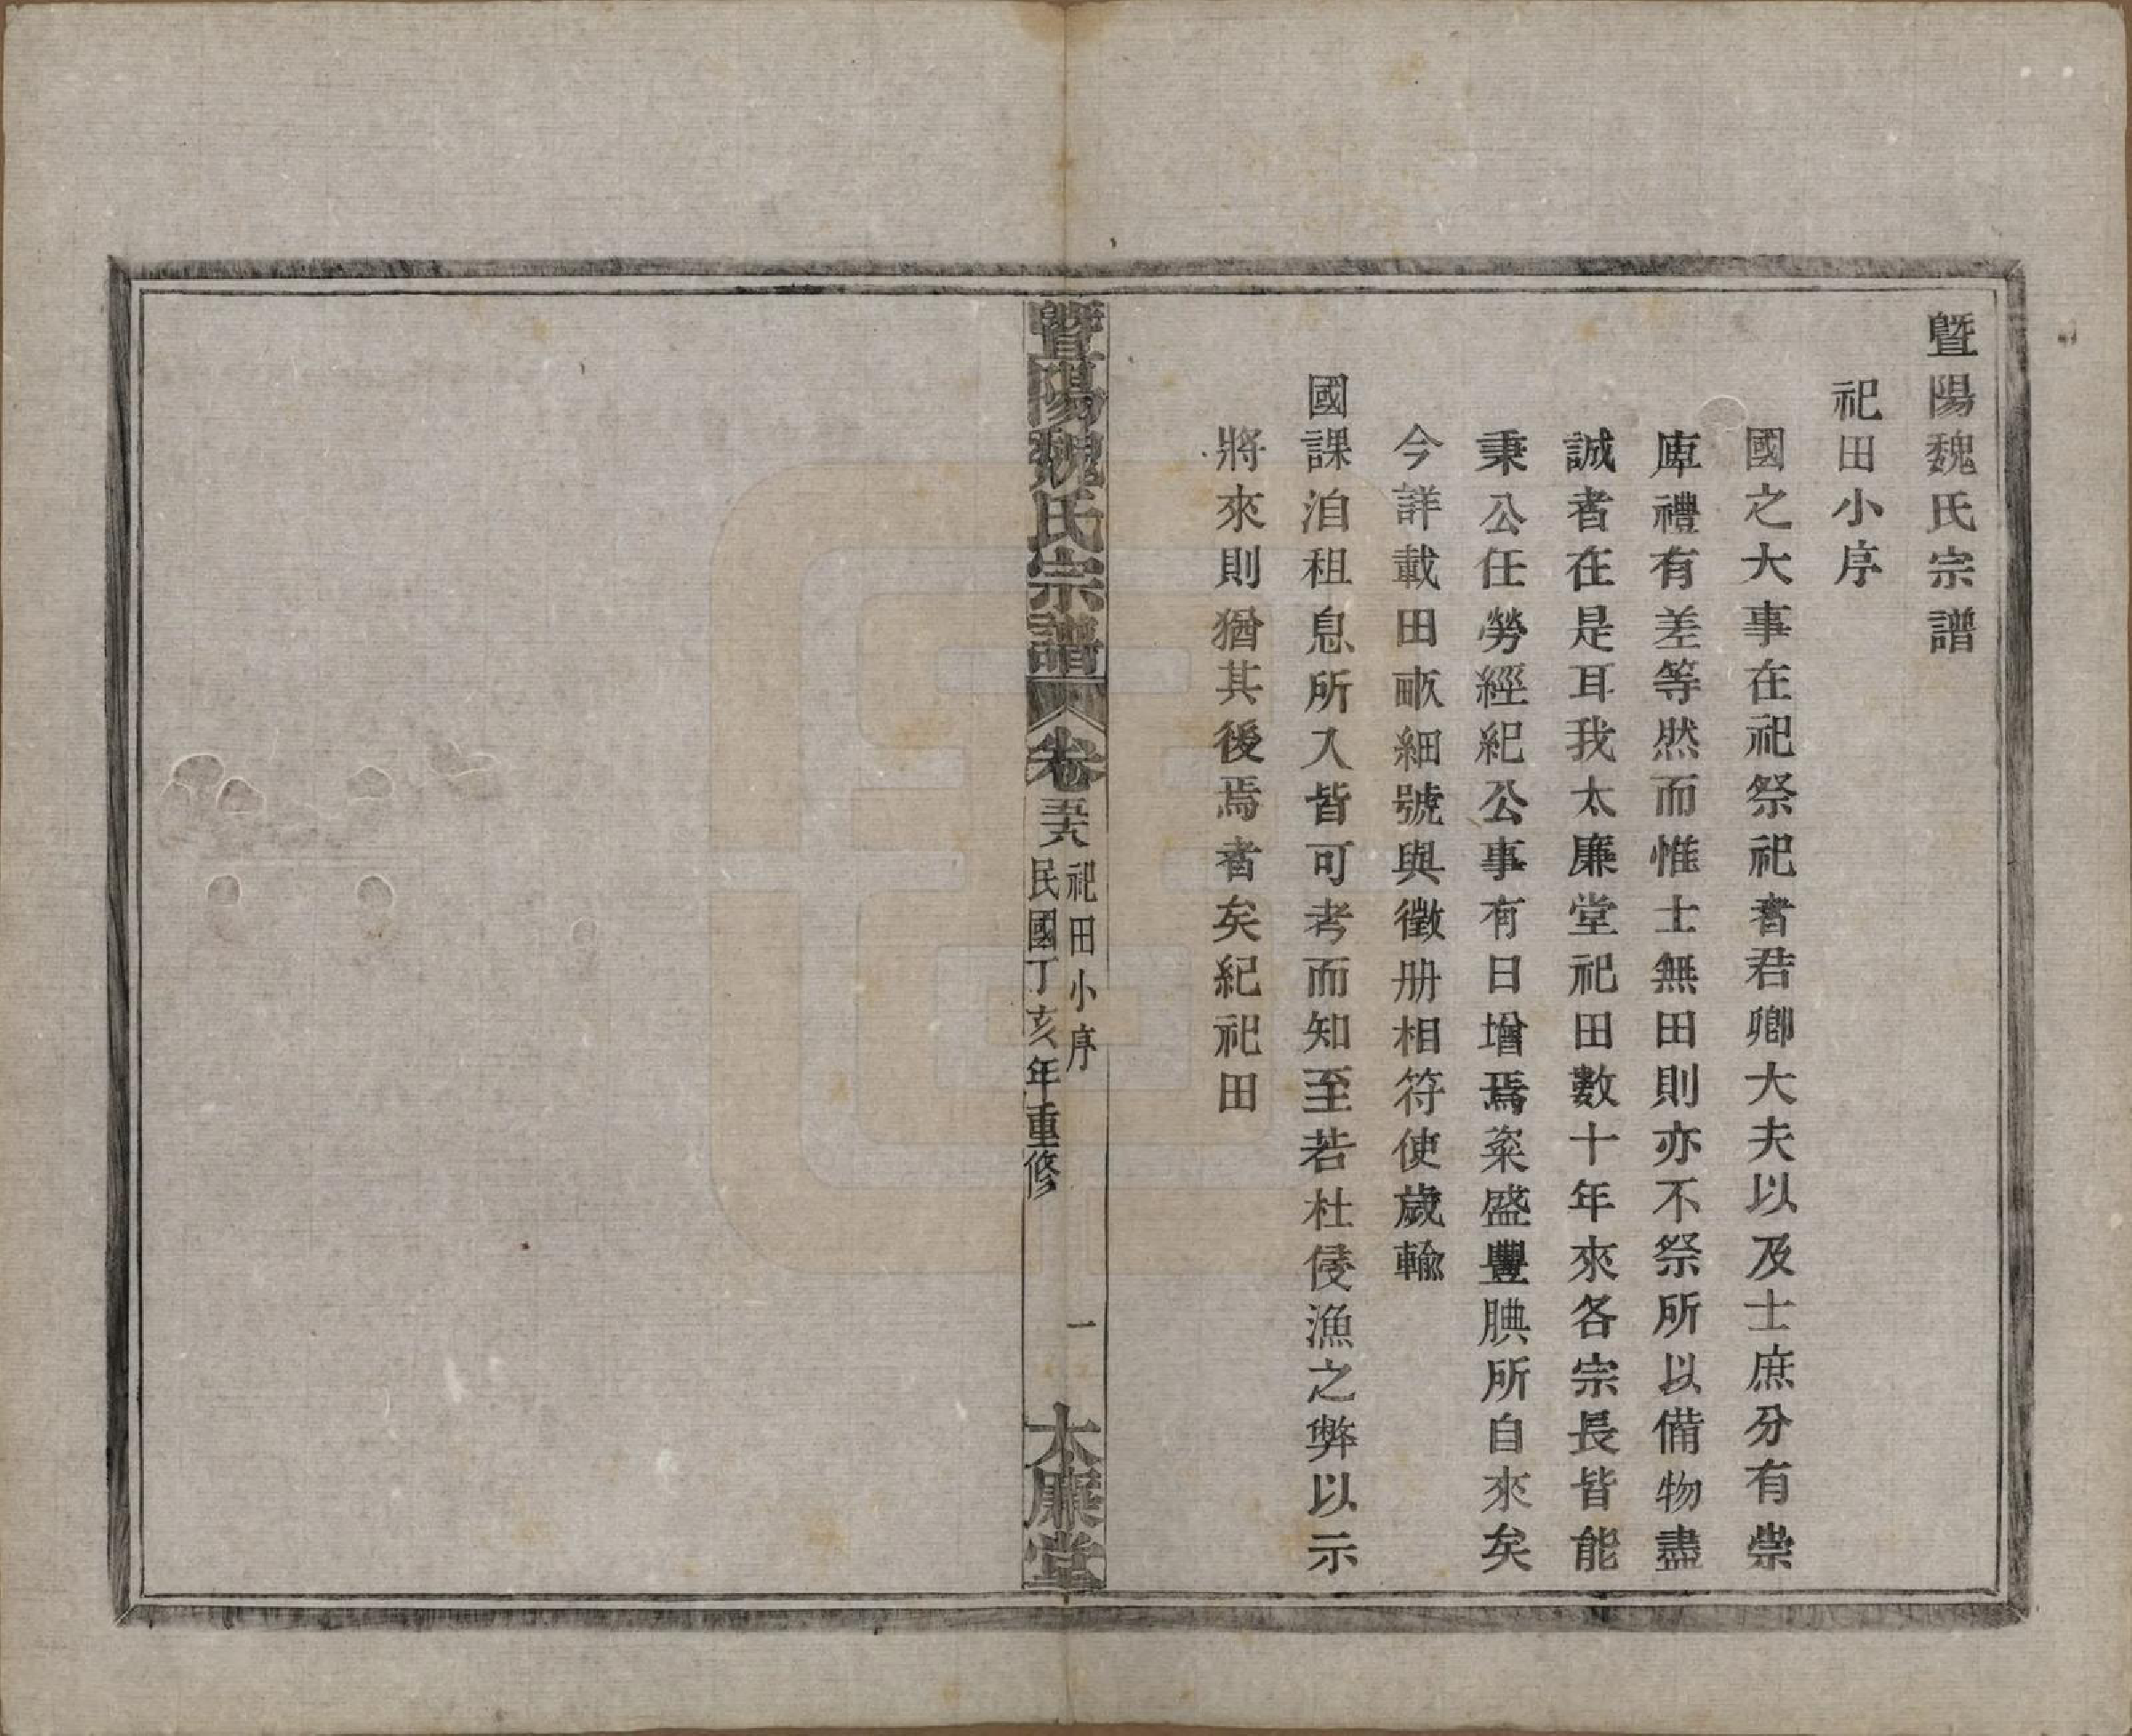 暨陽魏氏宗譜
祀田小序
國之大事在祀祭祀者君卿大夫以及士庶分有崇
庳禮有差等然而惟士無田則亦不祭所以備物盡
誠者在是耳我太廉堂祀田數十年來各宗長皆能
秉公任勞經紀公事有日增焉粢盛豐腆所自來矣
今詳載田畝細號與徵册相符使歲輸
國課洎租息所入皆可考而知至若杜侵漁之弊以示
將來則猶其後焉者矣紀祀田
暨陽魏氏宗譜
卷
五六
祀田小序
民國丁亥年重修
一
太廉堂